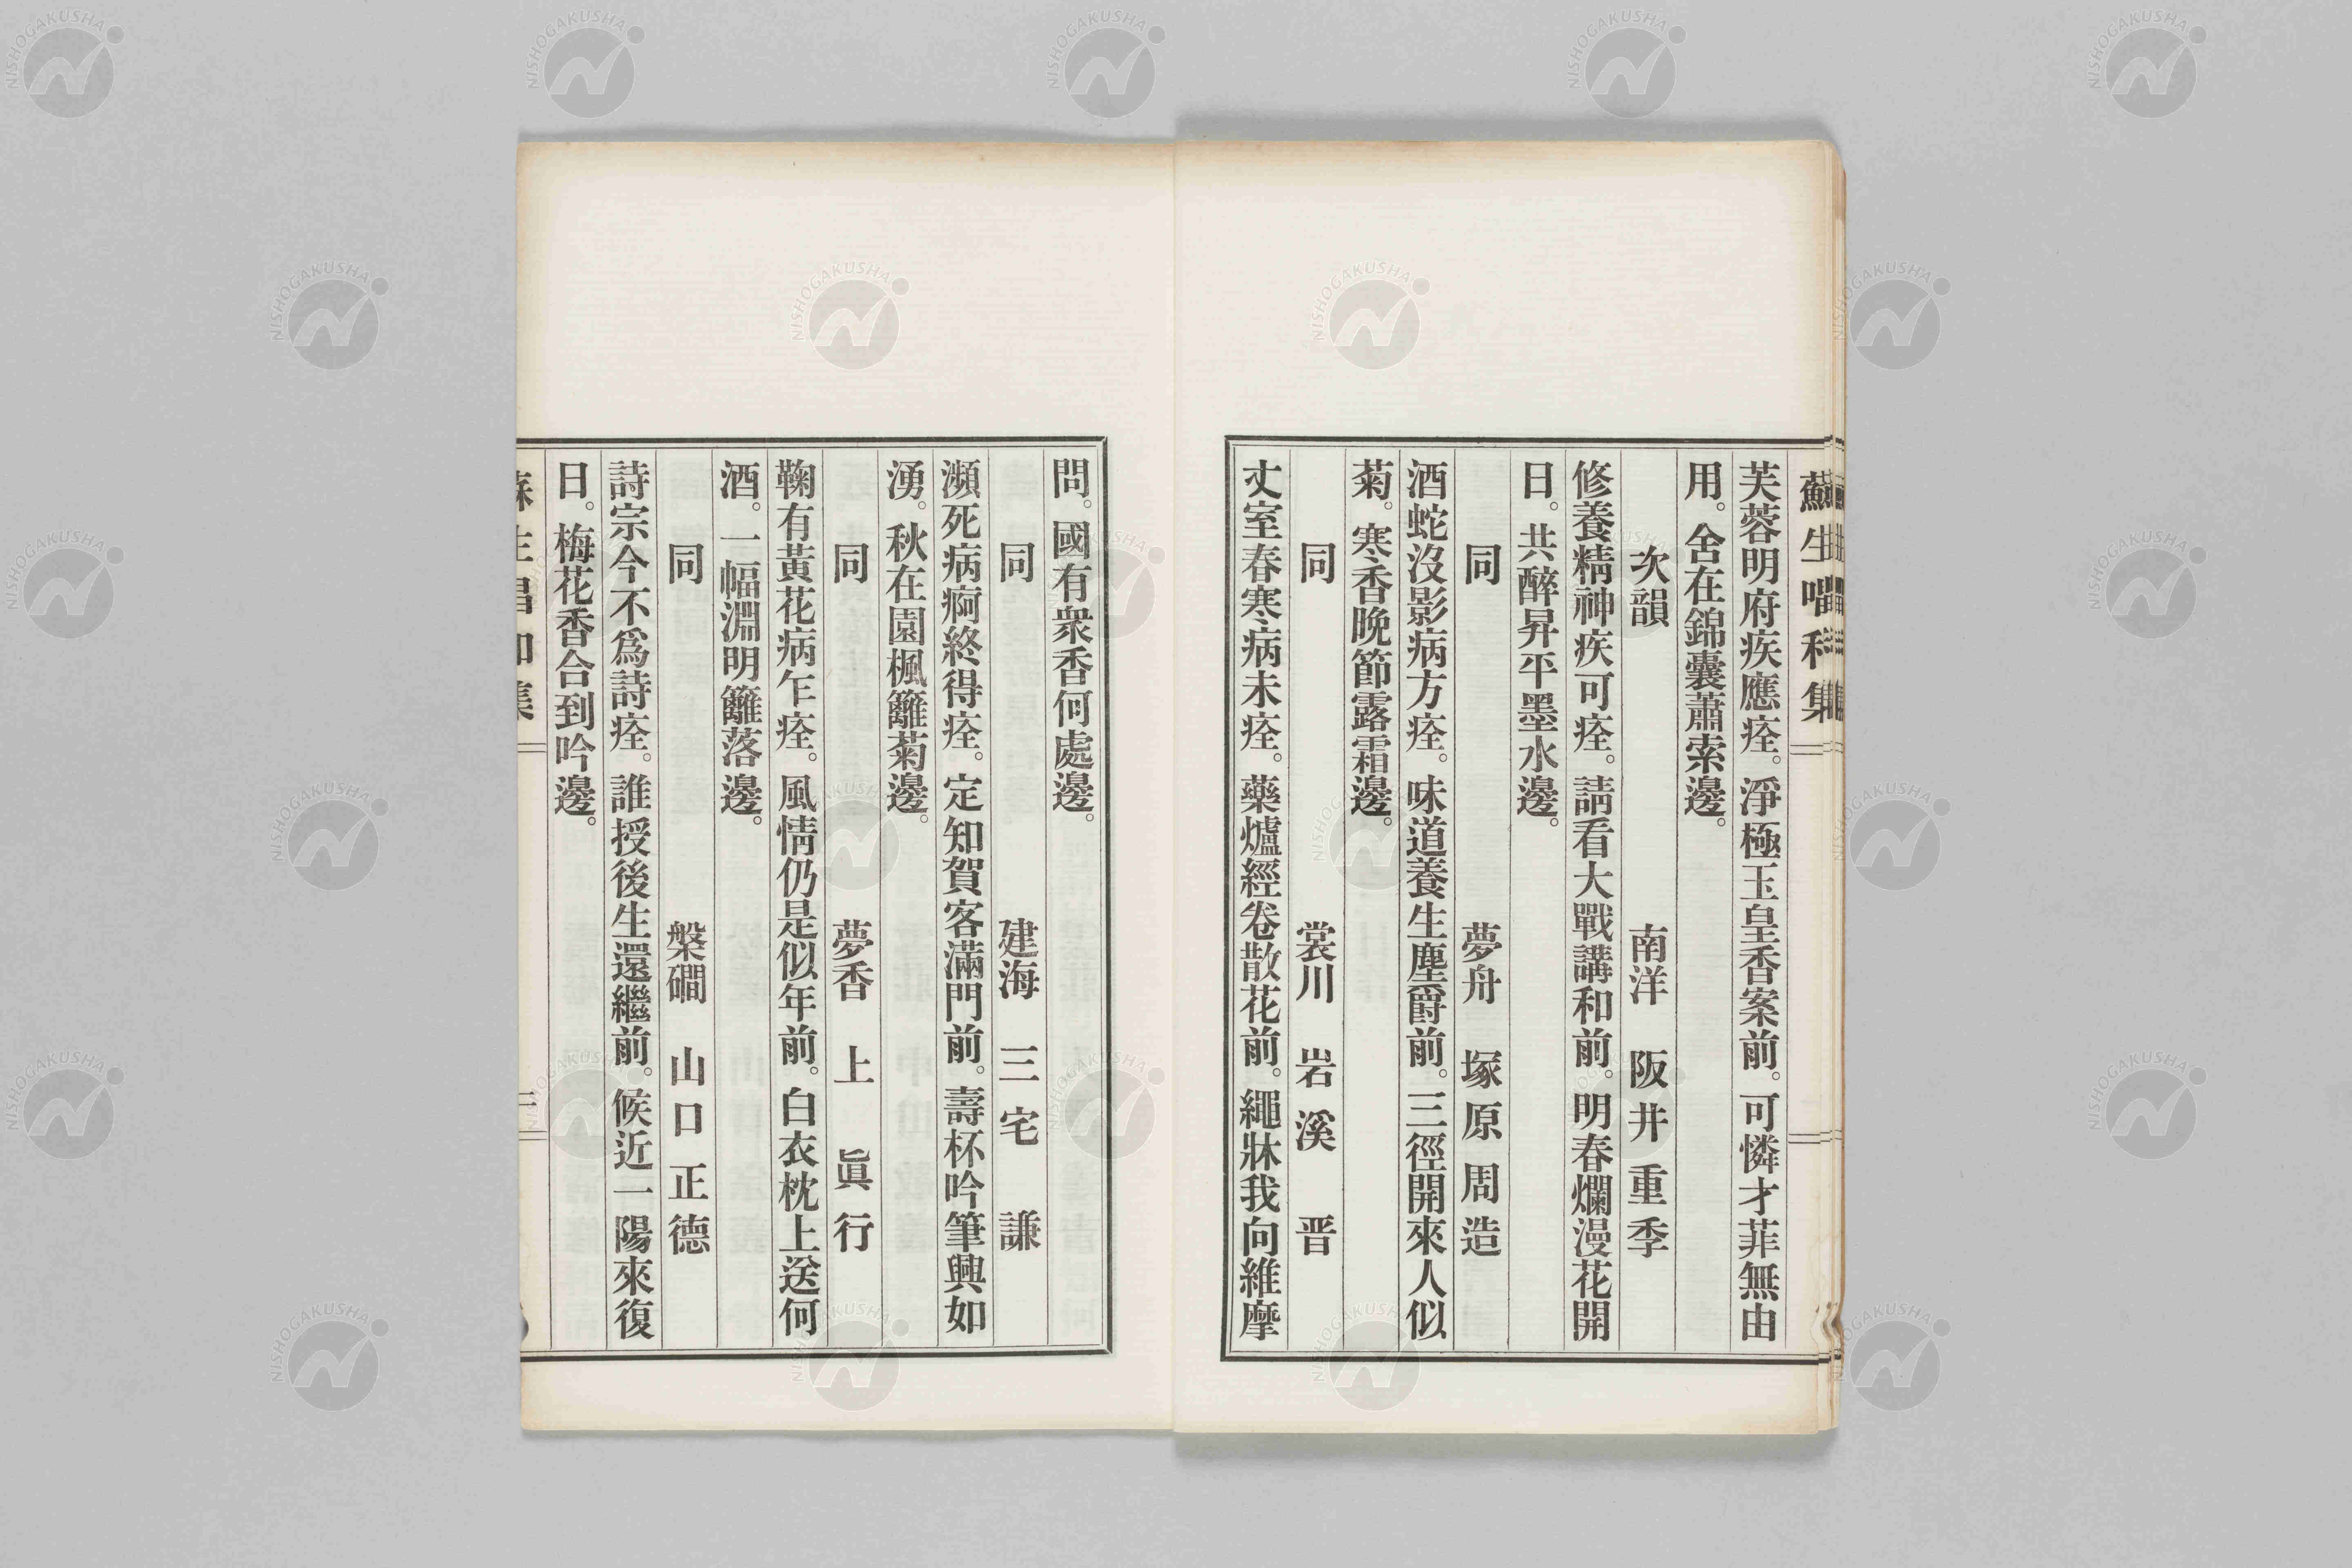 蘇生唱和集
芙蓉明府疾應痊。淨極玉皇香案前。可憐才菲無由
用。舍在錦囊蕭索邊。
次韻　南洋　阪井重季
修養精神疾可痊。請看大戰講和前。明春爛漫花開
日。共醉昇平墨水邊。
同　夢舟　塚原周造
酒蛇沒影病方痊。味道養生塵爵前。三徑開來人似
菊。寒香晚節露霜邊。
同　裳川　岩溪　晋
丈室春寒病未痊。藥爐經卷散花前。繩牀我向維摩
問。國有衆香何處邊。
同　建海　三宅　謙
瀕死病痾終得痊。定知賀客滿門前。壽杯吟筆興如
湧。秋在園楓籬菊邊。
同　夢香　上　眞行
鞠有黃花病乍痊。風情仍是似年前。白衣枕上送何
酒。一幅淵明籬落邊。
同　槃磵　山口正德
詩宗今不爲詩痊。誰授後生還繼前。候近一陽來復
日。梅花香合到吟邊。
NISHOGAKUSHA